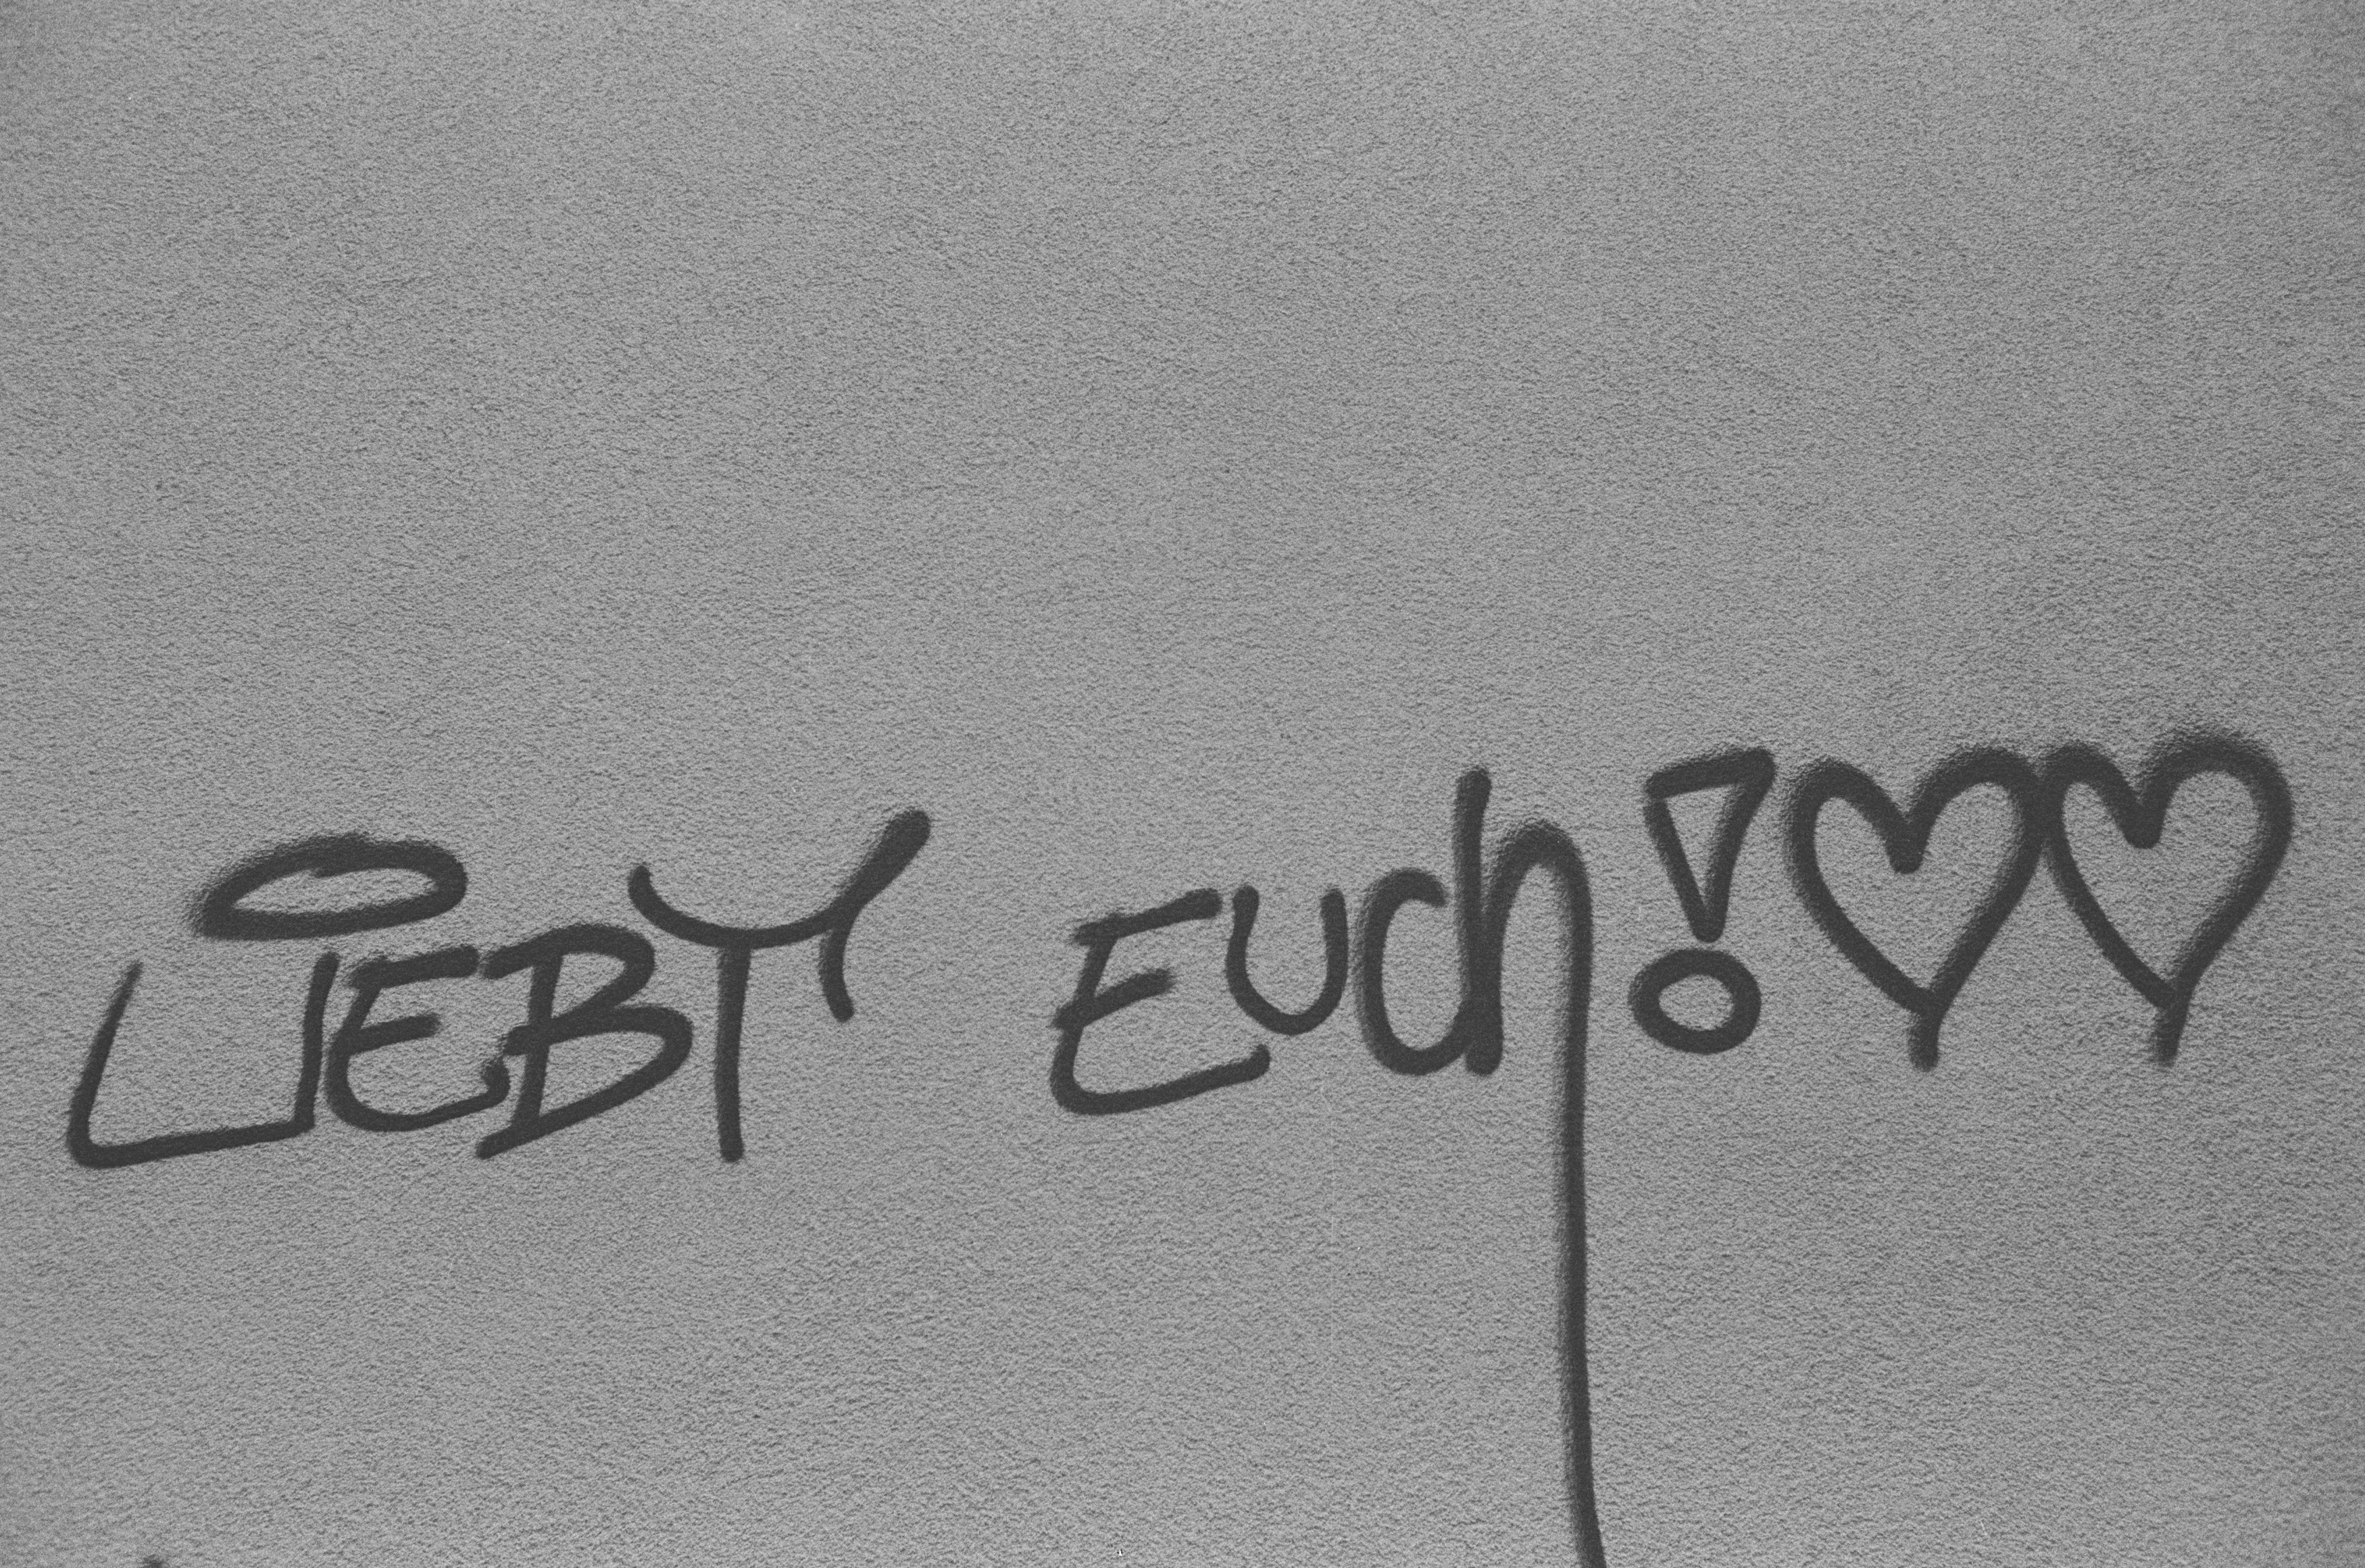 LiEBT Euch! ♡♡